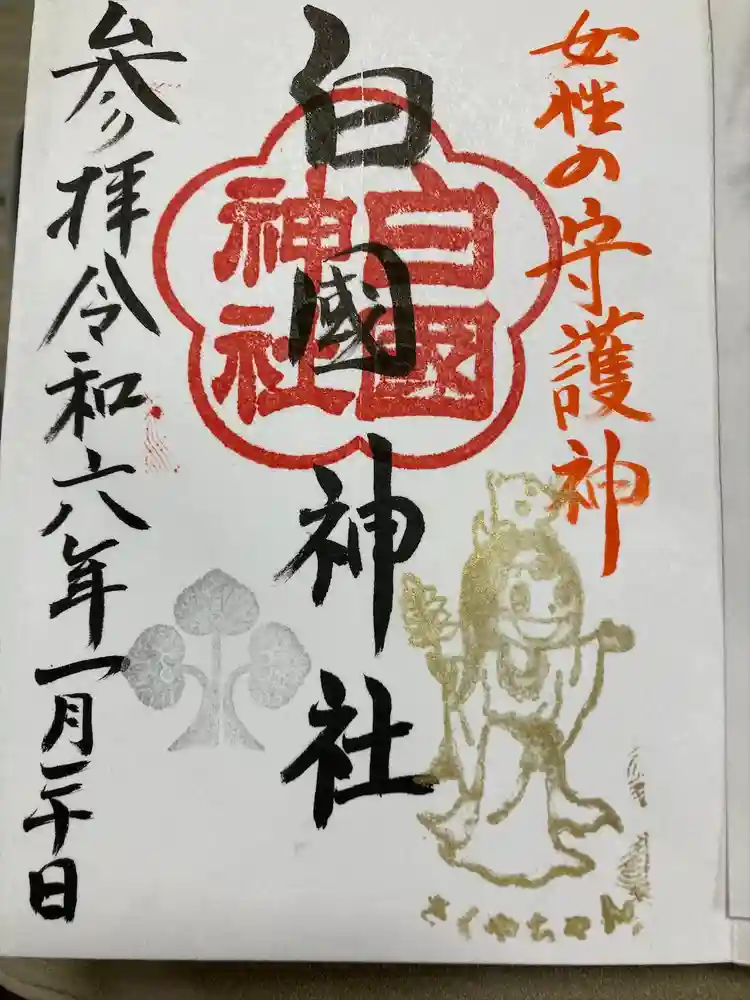 女性の守護神
白國神社
白國
神社
参拝令和六年一月二十日
さくやちゃん